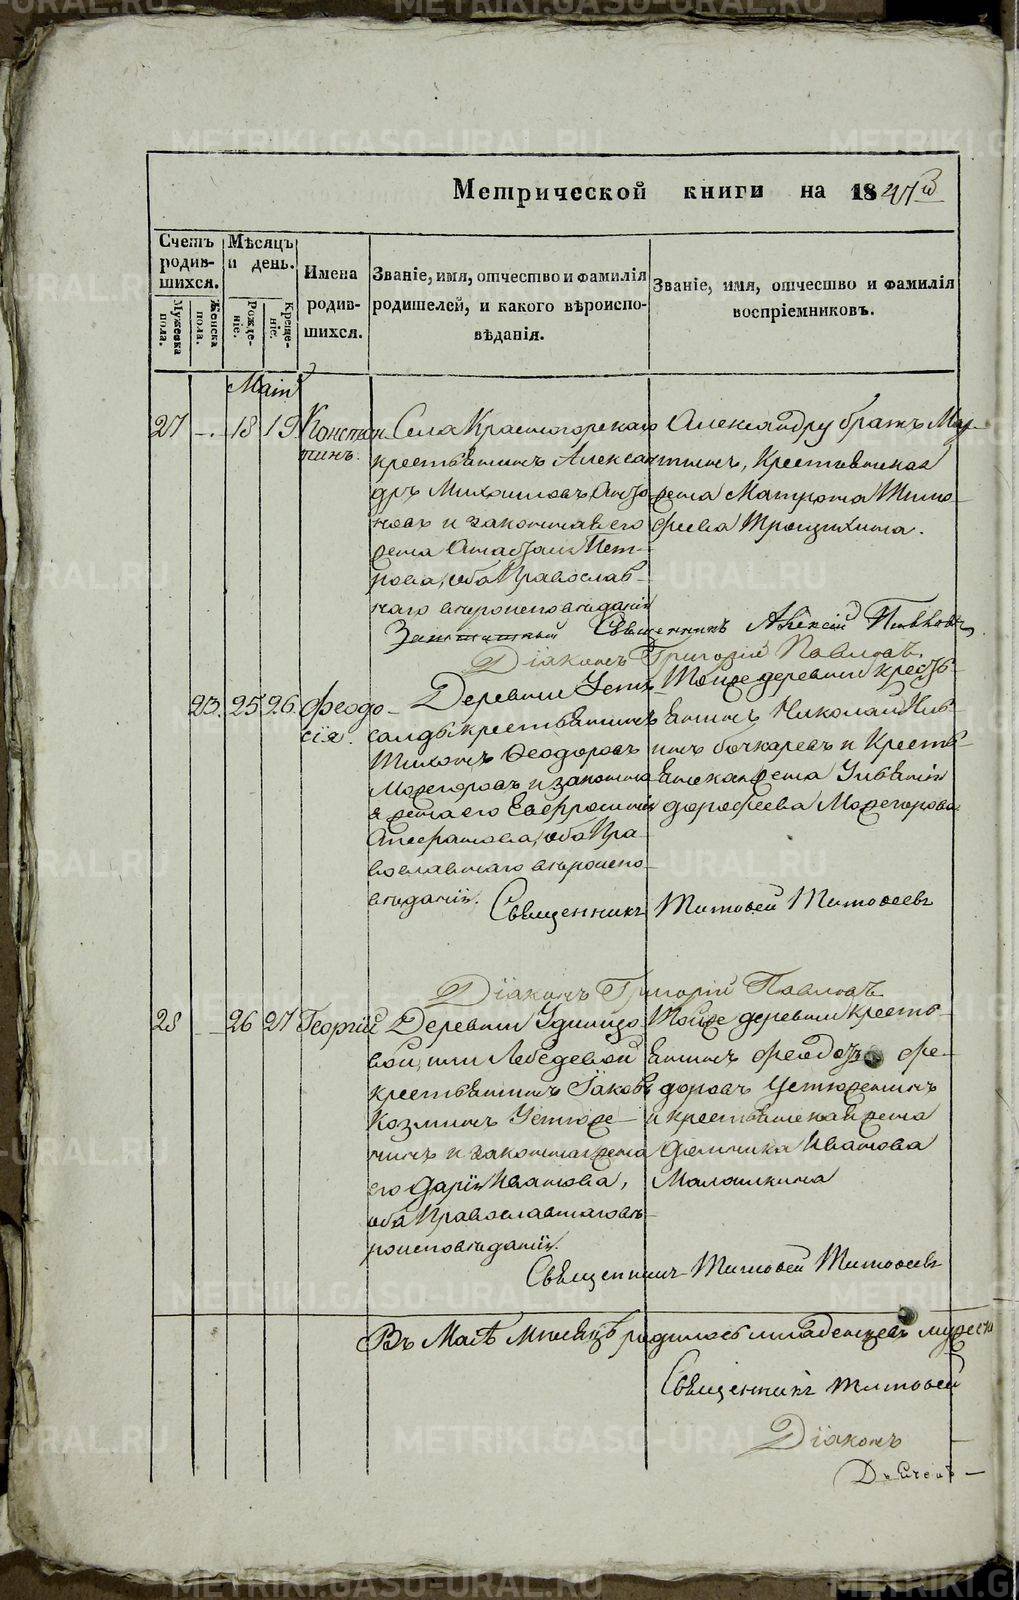 METRIKI.GASO-URAL.RU
Метрической книги на 1847й
Счетъ родив-шихся.
Мужеска пола.
Женска пола.
Мѣсяцъ и день.
Рожде-ніе.
Креще-ніе.
Имена родив-шихся.
Званіе, имя, отчество и фамилія родителей, и какого вѣроиспо-вѣданія.
Званіе, имя, отчество и фамилія воспріемниковъ.
Маій
27 18 19 Констан-
тинъ.
Села Красногорскаго
крестьянинъ Алексан-
дръ Михаиловъ
новъ и законная его
жена Пет-
рова, оба Православ-
наго вѣроисповѣданія
Александру братъ Мар-
тинъ, Крестьянская
жена Матрона Тимо-
феева
Заштатный Священникъ Алексій
Діаконъ Григорій Павловъ
23. 25 26 Феодо-
сія.
Деревни Усть
салды крестьянинъ
Тихонъ Феодоровъ
и законна
я жена его Евфросинія
оба Пра-
вославнаго вѣроиспо-
вѣданія.
Тойже деревни кресть-
янинъ Николай
Бочкаревъ и Кресть-
янская жена
Дорофеева
Священникъ Тимофей Тимофеевъ
Діаконъ Григорій Павловъ
28 26 27 Георгій
Деревни Удинцо-
вой, или Лебедевой
крестьянинъ Іаковъ
Козминъ Устюже-
нинъ и законная жена
его Дарія Иванова,
оба Православнаго вѣ-
роисповѣданія.
Тойже деревни кресть-
янинъ Феодоръ Фе-
доровъ Устюженинъ
и крестьянская жена
Доминика Иванова
Малашкина
Священникъ Тимофей Тимофеевъ
Въ Маѣ Мѣсяцѣ родилось младенцевъ мужеска
Священникъ Тимофей
Діаконъ
Дьячекъ